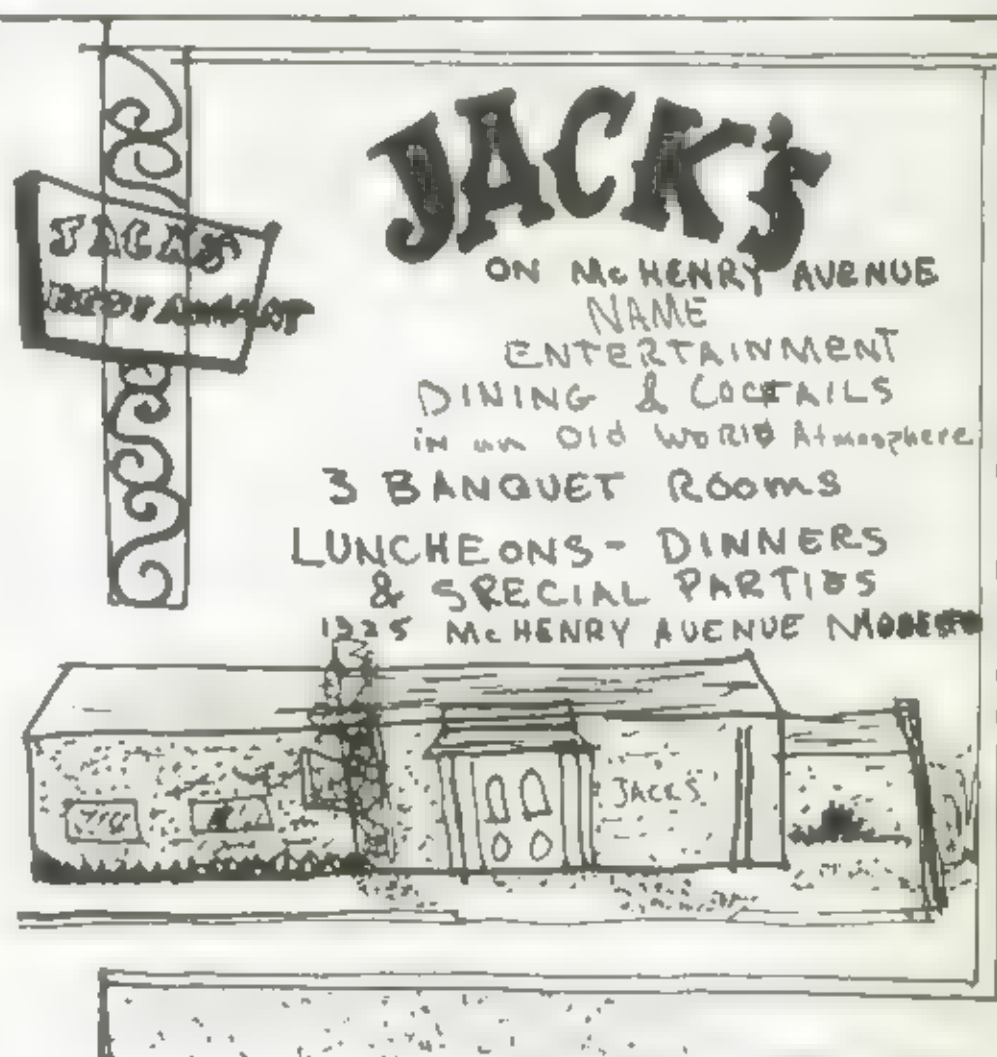 JACK'S
JACKS
ON McHENRY AVENUE
NAME
ENTERTAINMENT
DINING & COCKTAILS
in an Old WORLD Atmosphere
3 BANQUET ROOMS
LUNCHEONS - DINNERS
& SPECIAL PARTIES
McHENRY AVENUE MODESTO
JACKS